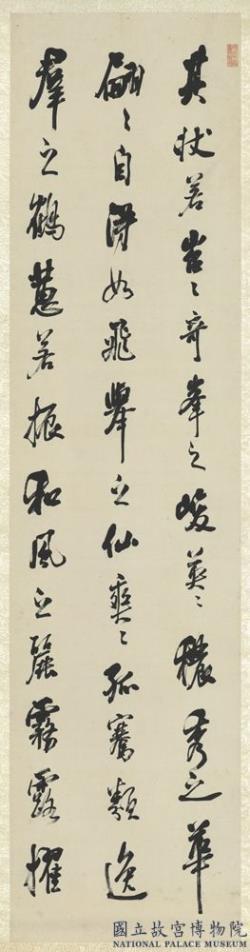 其狀若岧〻奇峯之峻英〻穠秀之華
翩〻自得如飛舉之仙爽〻孤騫類逸
羣之鶴蕙若振和風之麗霧露擢
國立故宮博物院
NATIONAL PALACE MUSEUM